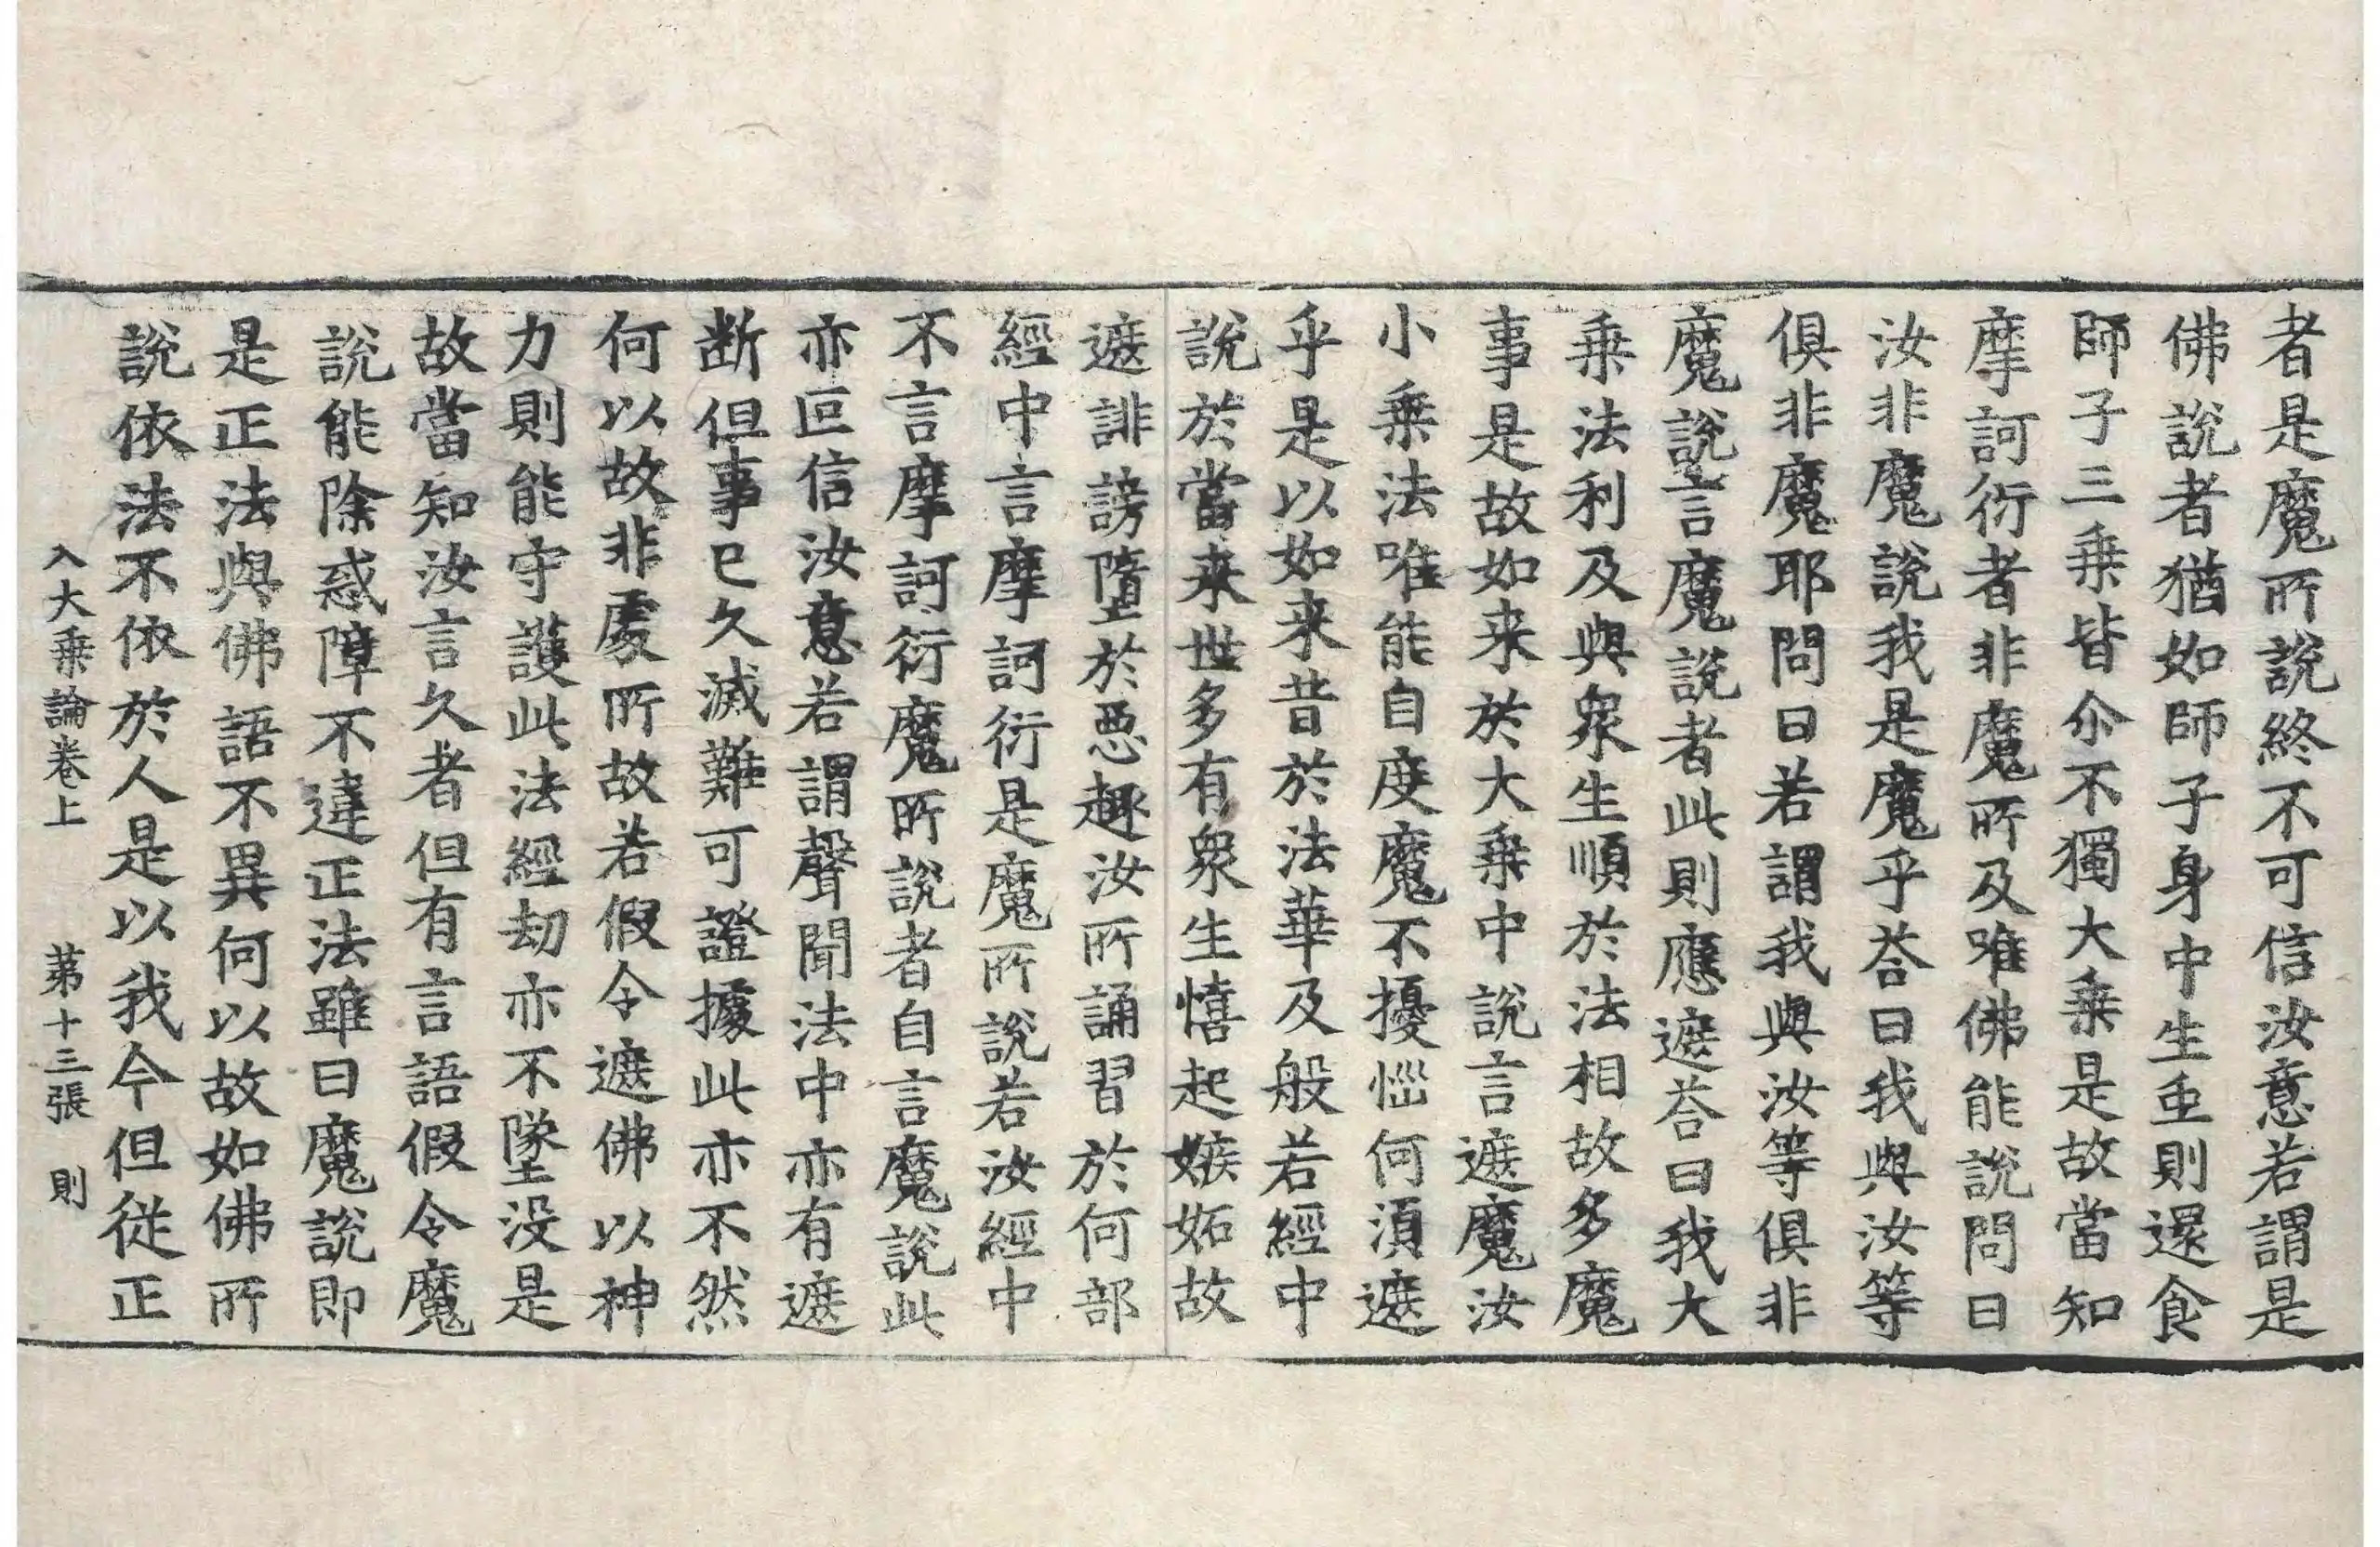 者是魔所說終不可信汝意若謂是
佛說者猶如師子身中生虫則還食
師子三乗皆尒不獨大乗是故當知
摩訶衍者非魔所及唯佛能說問曰
汝非魔說我是魔乎荅曰我與汝等
俱非魔耶問曰若謂我與汝等俱非
魔說言魔說者此則應遮荅曰我大
乗法利及與衆生順於法相故多魔
事是故如来於大乗中說言遮魔汝
小乗法唯能自度魔不擾惱何湏遮
乎是以如来昔於法華及般若經中
說於當来世多有衆生憘起嫉妬故
遮誹謗墮於惡趣汝所誦習於何部
經中言摩訶衍是魔所說若汝經中
不言摩訶衍魔所說者自言魔說此
亦叵信汝意若謂聲聞法中亦有遮
断但事已久滅難可證據此亦不然
何以故非處所故若假令遮佛以神
力則能守護此法經劫亦不墜没是
故當知汝言久者但有言語假令魔
說能除惑障不違正法雖曰魔說即
是正法與佛語不異何以故如佛所
說依法不依於人是以我今但従正
入大乗論卷上 第十三張 則